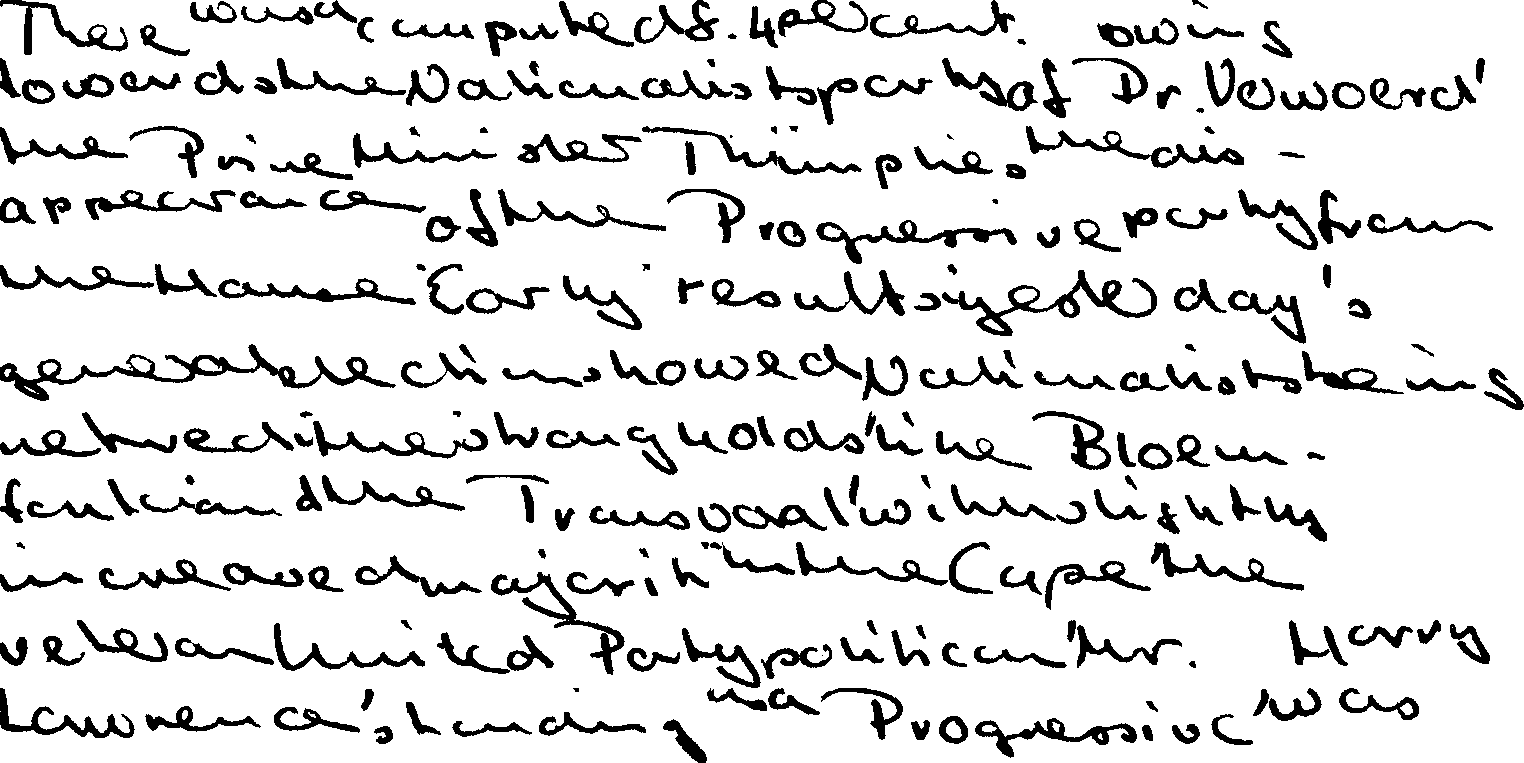 There was a computed 8.4 per cent. swing
towards the Nationalist party of Dr. Vewoerd,
the Prime Minister. This implies the dis-
appearance of the Progressive party from
the House. Early results in yesterday's
general election showed Nationalists being
returned in the strongholds, like Bloem-
fontein and the Transvaal, with slightly
increased majorities. In the Cape, the
veteran United Party politician, Mr. Harry
Lawrence, standing as a Progressive, was